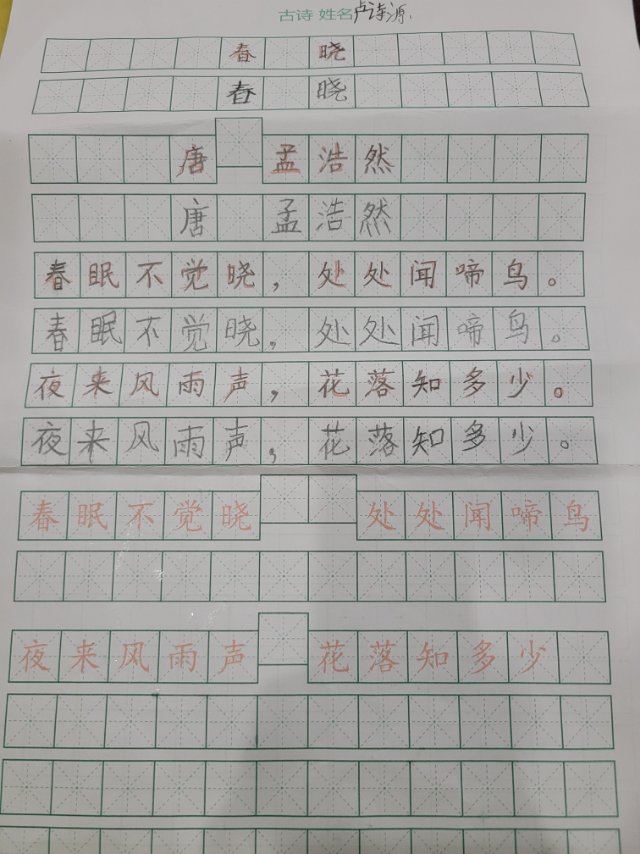 古诗 姓名卢诗源
春晓
春晓
唐 孟浩然
唐 孟浩然
春眠不觉晓，处处闻啼鸟。
春眠不觉晓，处处闻啼鸟。
夜来风雨声，花落知多少。
夜来风雨声，花落知多少。
春眠不觉晓 处处闻啼鸟
夜来风雨声 花落知多少